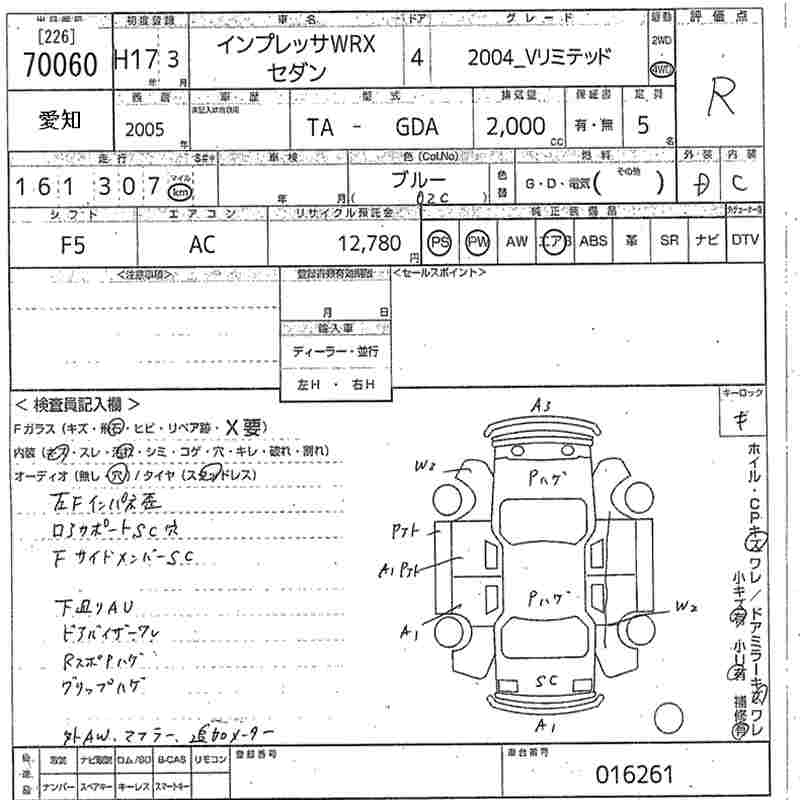 初度登録 車名 ドア グレード 駆動 評価点
[226]
70060 H17年 3月 インプレッサWRX セダン 4 2004_Vリミテッド 2WD 4WD R
愛知 2005年 車歴 型式 排気量 保証書 定員
TA - GDA 2,000cc 有・無 5名
走行 車検 色(Col.No) 色替 燃料 外装 内装
161307 マイル km 年 月 ブルー (02C) G・D・電気( その他 ) D C
シフト エアコン リサイクル預託金 純正装備品
F5 AC 12,780円 PS PW AW エアB ABS 革 SR ナビ DTV
<注意事項> 登録書類有効期限 <セールスポイント>
月 日
輸入車
ディーラー・並行
左H ・ 右H
<検査員記入欄> キーロック
Fガラス(キズ・飛石・ヒビ・リペア跡・X要) キ
内装(キズ・スレ・汚れ・シミ・コゲ・穴・キレ・破れ・割れ)
オーディオ(無し・穴)/タイヤ(スタッドレス)
左Fインパネ歪
ロアサポートSC穴
FサイドメンバーSC
下廻りAU
ドアバイザーワレ
RスポPハゲ
グリップハゲ
外AW、マフラー、追加メーター
A3
W2
Pハゲ
Pアト
A1 Pアト
Pハゲ
A1
W2
SC
A1
ホイル・CPキズワレ/ドアミラーキズワレ
小キズ有 小U有 補修有
取説 ナビ取説 ロム/SD B-CAS リモコン 登録番号 車台番号
ナンバー スペアキー キーレス スマートキー 016261